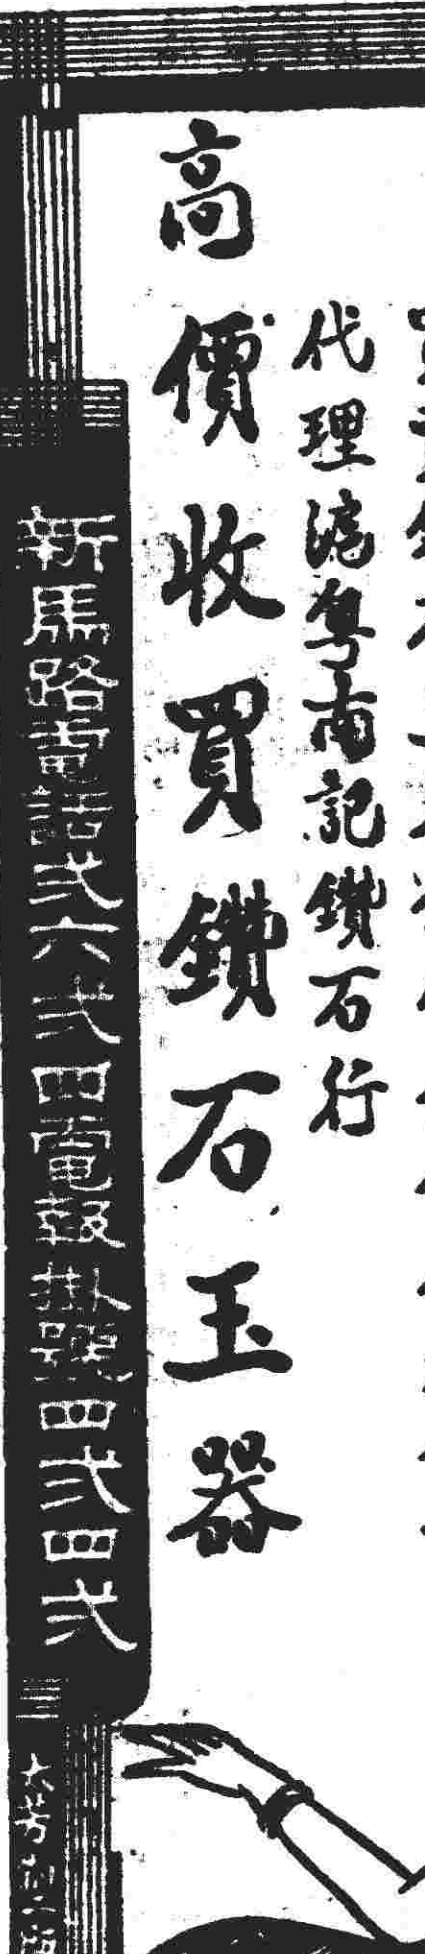 代理滬粵南記鑽石行
高價收買鑽石玉器
新馬路電話弍六弍四電報掛號四弍四弍